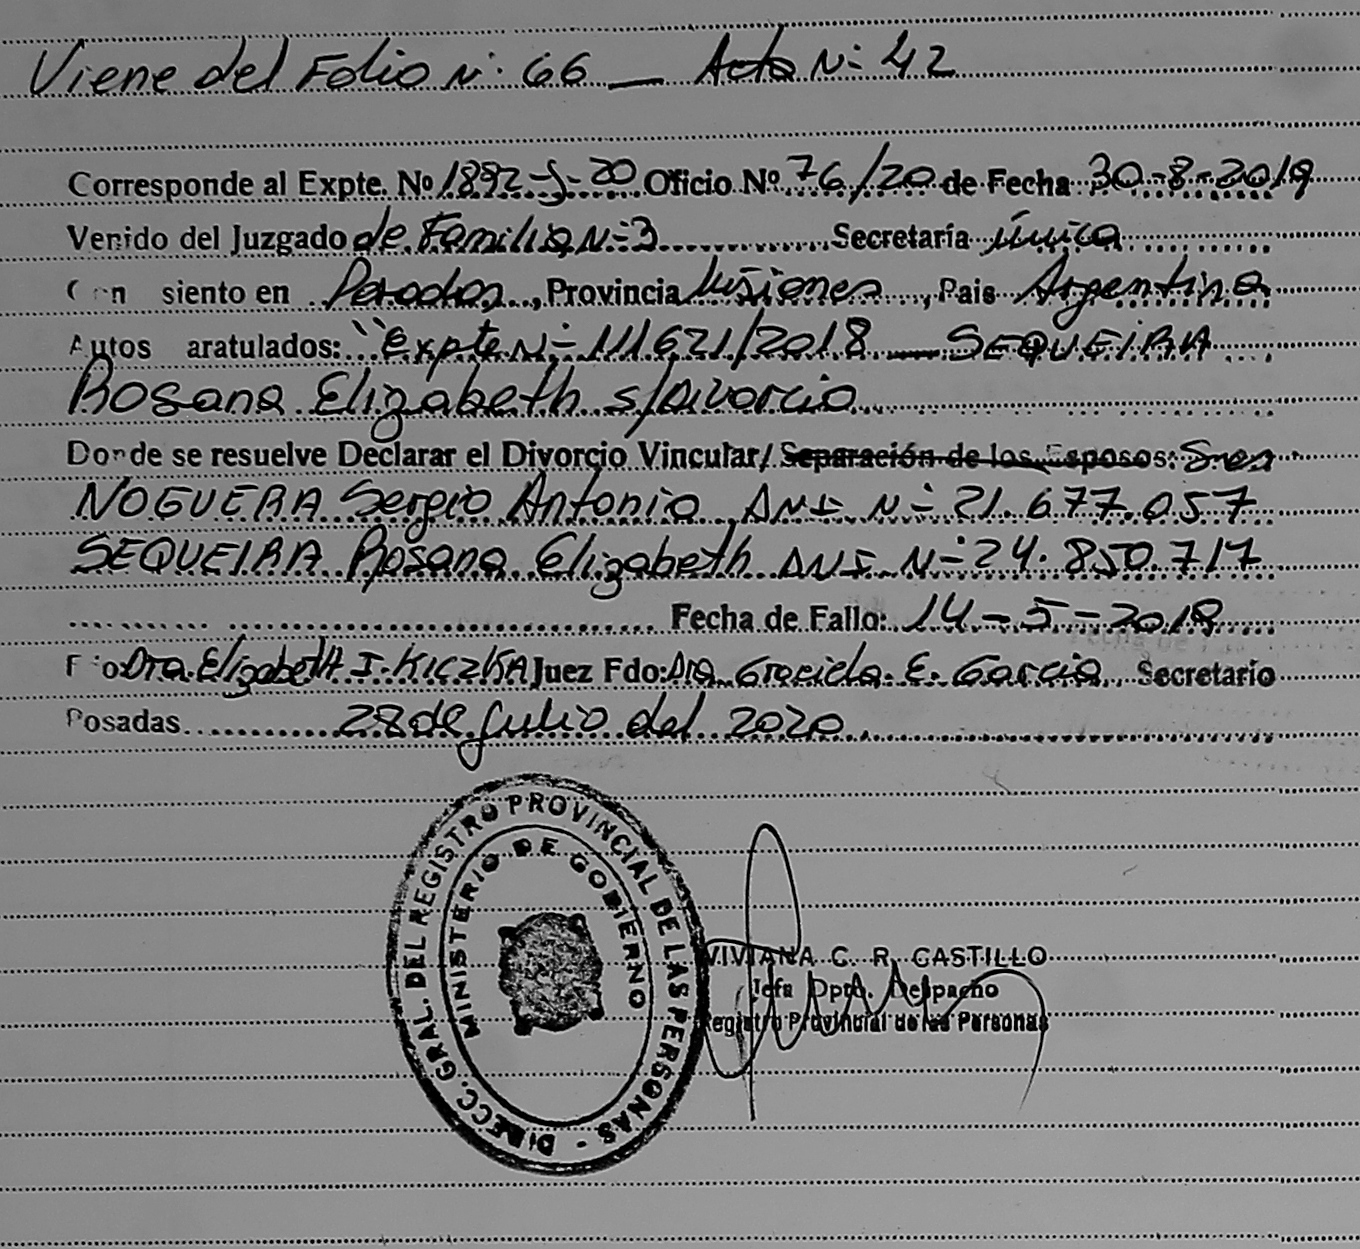 Viene del Folio Nº 66 — Acta Nº 42
Corresponde al Expte. Nº 1892-J-20 Oficio Nº 76/20 de Fecha 30-8-2019
Venido del Juzgado de Familia Nº 3 Secretaría Única
Con siento en Posadas, Provincia Misiones, Pais Argentina
Autos aratulados: "Expte Nº 111621/2018 — SEQUEIRA
Rosana Elizabeth s/Divorcio
Donde se resuelve Declarar el Divorcio Vincular/ Separación de los Esposos: Sres
NOGUERA Sergio Antonio DNI Nº 21.677.057
SEQUEIRA Rosana Elizabeth DNI Nº 24.850.717
Fecha de Fallo: 14-5-2019
Fdo Dra. Elizabeth I. KICZKA Juez Fdo: Dra Graciela E. Garcia, Secretario
Posadas 28 de Julio del 2020
DIRECC. GRAL. DEL REGISTRO PROVINCIAL DE LAS PERSONAS -
MINISTERIO DE GOBIERNO
VIVIANA C. R. CASTILLO
Jefa Dpto. Despacho
Registro Provincial de las Personas